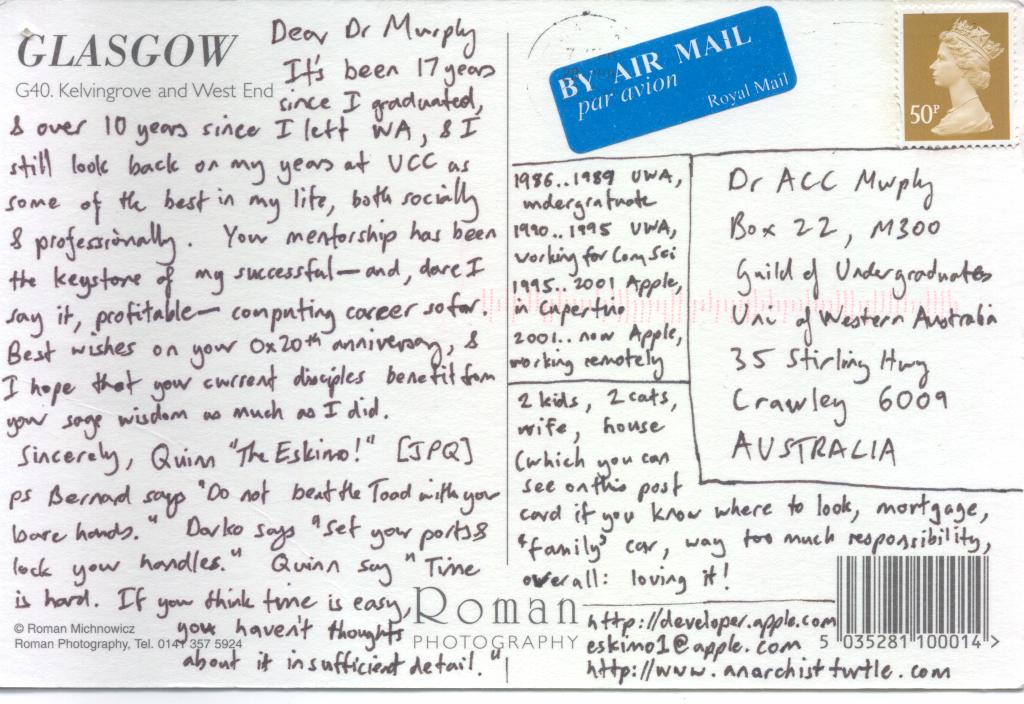 GLASGOW
G40. Kelvingrove and West End
Dear Dr Murphy
It's been 17 years
since I graduated,
& over 10 years since I left WA, & I
still look back on my years at UCC as
some of the best in my life, both socially
& professionally. Your mentorship has been
the keystone of my successful—and, dare I
say it, profitable— computing career so far.
Best wishes on your 0x20th anniversary, &
I hope that your current disciples benefit from
your sage wisdom as much as I did.
Sincerely, Quinn "The Eskimo!" [JPQ]
ps Bernard says "Do not beat the Toad with your
bare hands." Darko says "set your ports &
lock your handles." Quinn say "Time
is hard. If you think time is easy,
you haven't thoughts
about it in sufficient detail."
© Roman Michnowicz
Roman Photography, Tel. 0141 357 5924
BY AIR MAIL
par avion
Royal Mail
50P
1986..1989 UWA,
undergraduate
1990..1995 UWA,
working for Com Sci
1995..2001 Apple,
in Cupertino
2001..now Apple,
working remotely
Dr ACC Murphy
Box 22, M300
Guild of Undergraduates
Uni of Western Australia
35 Stirling Hwy
Crawley 6009
AUSTRALIA
2 kids, 2 cats,
wife, house
(which you can
see on this post
card if you know where to look, mortgage,
"family" car, way too much responsibility,
overall: loving it!
Roman
PHOTOGRAPHY
http://developer.apple.com
eskimo1@apple.com
http://www.anarchistturtle.com
5 035281 100014 >